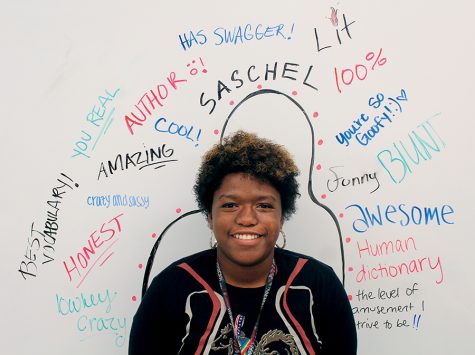 HAS SWAGGER!
Lit
SASCHEL
100%
AUTHOR!
YOU REAL
COOL!
you're so
Goofy!:)♡
AMAZING
BLUNT
funny
crazy and sassy
BEST
VOCABULARY!
HONEST
awesome
Human
dictionary
the level of
amusement I
trive to be!!
Crazy